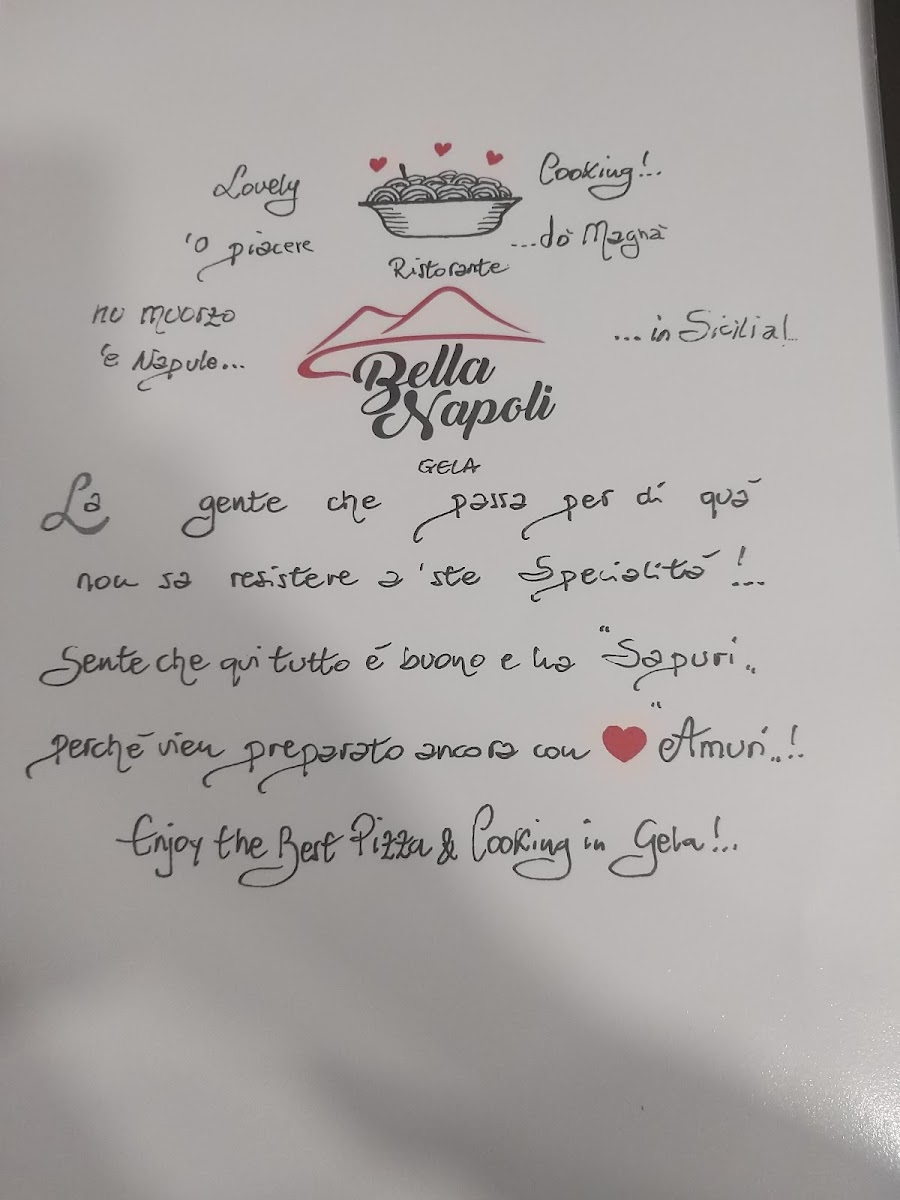 Lovely Cooking!..
'O piacere ...dò Magnà
Ristorante
nu muorzo ...in Sicilia!..
'e Napule...
Bella
Napoli
GELA
La gente che passa per di quà
non sa resistere a 'ste Specialità!...
Sente che qui tutto é buono e ha "Sapuri"
perché vien preparato ancora con ❤ "Amuri"..!
Enjoy the Best Pizza & Cooking in Gela!..